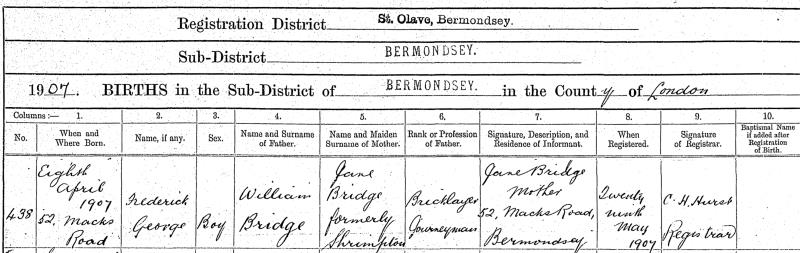 Registration District St. Olave, Bermondsey.
Sub-District BERMONDSEY.
1907. BIRTHS in the Sub-District of BERMONDSEY. in the County of London
Columns :— 1. 2. 3. 4. 5. 6. 7. 8. 9. 10.
No. When and Where Born. Name, if any. Sex. Name and Surname of Father. Name and Maiden Surname of Mother. Rank or Profession of Father. Signature, Description, and Residence of Informant. When Registered. Signature of Registrar. Baptismal Name if added after Registration of Birth.
438 Eighth April 1907 52, Macks Road Frederick George Boy William Bridge Jane Bridge formerly Shrimpton Bricklayer Journeyman Jane Bridge Mother 52, Macks Road, Bermondsey Twenty ninth May 1907 C. H. Hurst Registrar